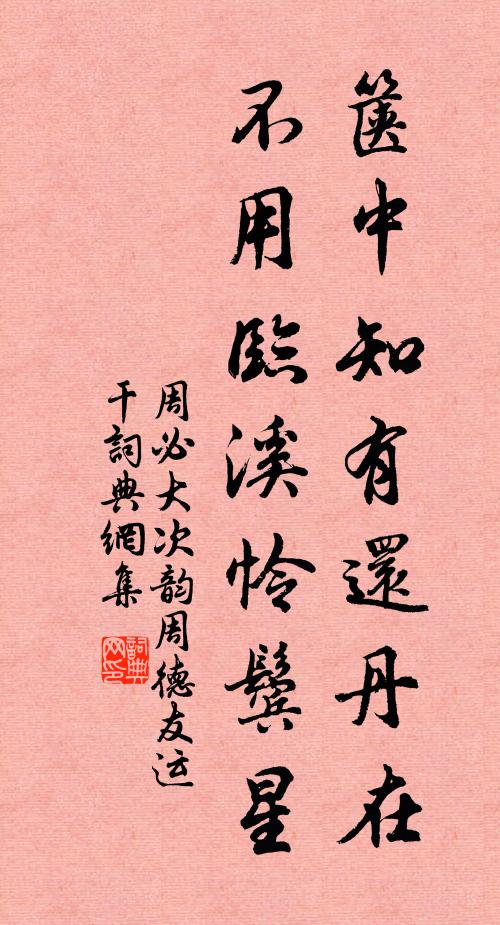 篋中知有還丹在
不用臨溪怜鬓星
周必大次韵周德友运
干詞典網集
詞典网印